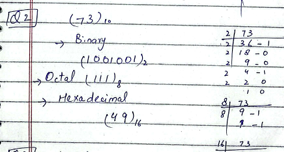 Q2
(73)10
→ Binary
(1001001)2
→ Octal (111)8
→ Hexadecimal
(49)16
2 | 73
2 | 36 - 1
2 | 18 - 0
2 | 9 - 0
2 | 4 - 1
2 | 2 0
1 0
8 | 73
8 | 9 - 1
- 1
16 | 73